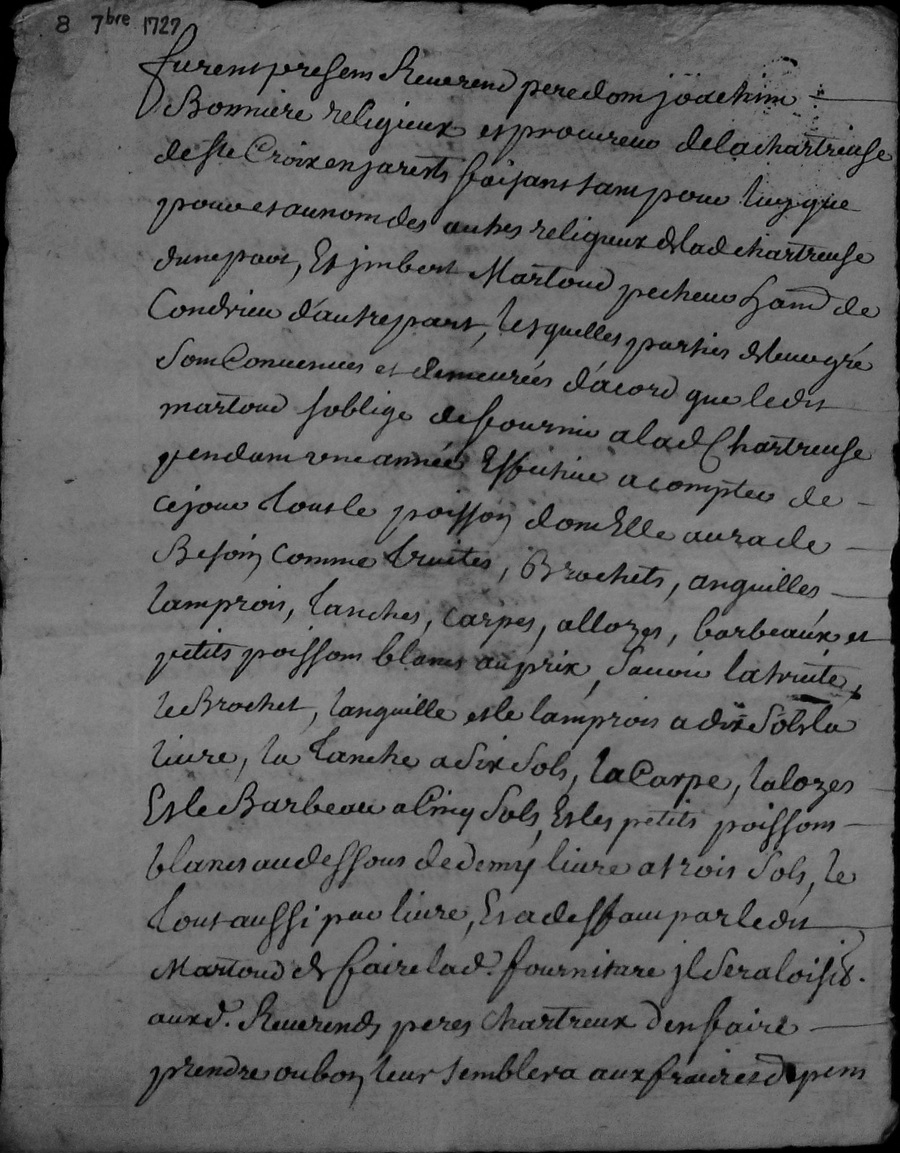 8 7bre 1727
furent presens Reverend pere dom joachim
Bonniere religieux et procureur dela chartreuse
de ste Croix en jarests faisant tam pour luy que
pour et au nom des autres religieux de lad chartreuse
dune part, Et jmbert Martoud pecheur hand de
Condrieu d'autre part, lesquelles parties de leur gré
som Convenues et demeurées d'acord que ledit
martoud soblige de fournir a lad Chartreuse
pendam une année Effective a compter de
ce jour tout le poisson dom Elle aura de
Besoin comme truites, Brochets, anguilles
lamprois, tanches, carpes, allozes, barbeaux et
petits poissoms blancs au prix, savoir la truite,
le Brochet, languille et le lamprois a dix sols la
livre, la tanche a six sols, la Carpe, laloze
Et le Barbeau a Cinq sols, Et les petits poissoms
blancs au dessous de demy livre a trois sols, le
tout aussi par livre, Et a deffaut par ledit
Martoud de faire lad. fourniture jl sera loisible
aux d. Reverends peres Chartreux d'en faire
prendre ou bon leur semblera aux fraix et depens